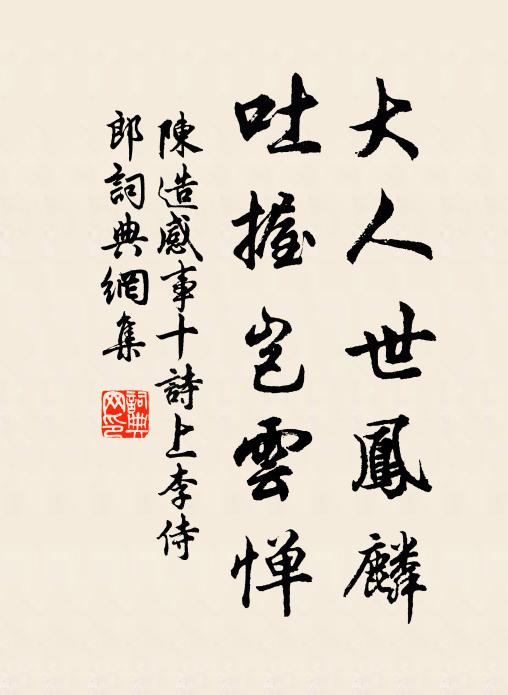 大人世鳳麟
吐握豈雲惮
陳造感事十詩上李侍
郎詞典網集
詞典
网印